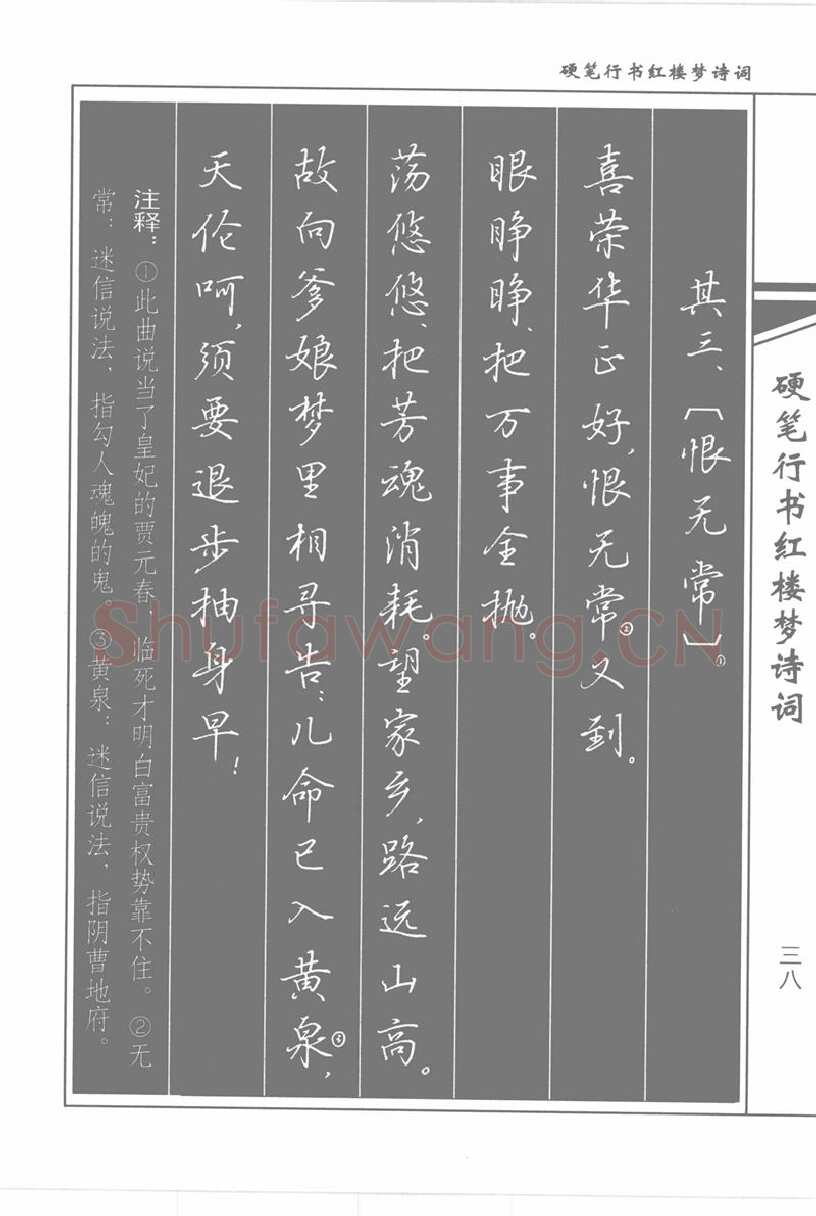 硬笔行书红楼梦诗词
其三、〔恨无常〕①
喜荣华正好,恨无常②又到。
眼睁睁、把万事全抛。
荡悠悠、把芳魂消耗。望家乡,路远山高。
故向爹娘梦里相寻告:儿命已入黄泉③,
天伦呵,须要退步抽身早!
注释:①此曲说当了皇妃的贾元春、临死才明白富贵权势靠不住。②无
常:迷信说法,指勾人魂魄的鬼。③黄泉:迷信说法,指阴曹地府。
硬笔行书红楼梦诗词
三八
Shufawang.CN